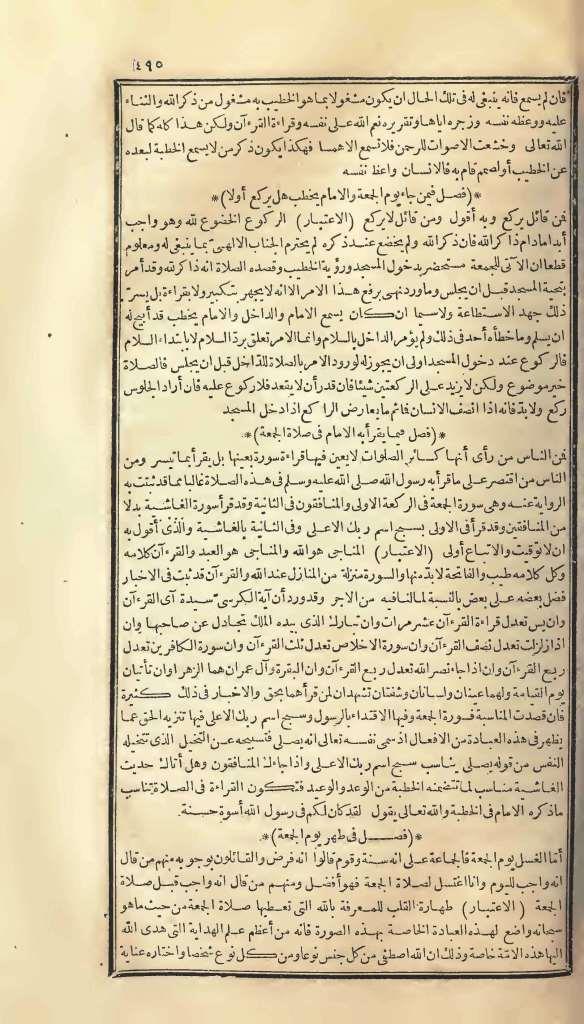 ٤٩٥
فان لم يسمع فانه ينبغى له فى تلك الحال ان يكون مشغولا بما هو الخطيب به مشغول من ذكر الله والثناء
عليه ووعظه نفسه وزجره اياها وتقريره نعم الله على نفسه وقراءة القرءآن ولكن هذا كله كما قال
الله تعالى وخشعت الاصوات للرحمن فلا تسمع الا همسا فهكذا يكون ذكر من لا يسمع الخطبة لبعده
عن الخطيب أو لصمم قام به فالانسان واعظ نفسه
*(فصل فيمن جاء يوم الجمعة والامام يخطب هل يركع أولا)*
فمن قائل يركع وبه أقول ومن قائل لا يركع (الاعتبار) الركوع الخضوع لله وهو واجب
أبدا مادام ذاكر الله فان ذكر الله ولم يخضع عند ذكره لم يحترم الجناب الالهى بما ينبغى له ومعلوم
قطعا ان الآتى للجمعة مستحضر بدخول المسجد ورؤية الخطيب وقصده الصلاة انه ذاكر لله وقد أمر
بتحية المسجد قبل ان يجلس وما ورد نهى برفع هذا الامر الا انه لا يجهر بتكبير ولا بقراءة بل يسر بـ
ذلك جهد الاستطاعة ولا سيما ان كان يسمع الامام والداخل والامام يخطب قد أبيح له
ان يسلم وما خطأه أحد فى ذلك ولم يؤمر الداخل بالسلام وانما الامر تعلق برد السلام لا بابتداء السلام
فالركوع عند دخول المسجد اولى ان يجوز له لورود الامر بالصلاة للداخل قبل ان يجلس فالصلاة
خير موضوع ولكن لا يزيد على الركعتين شيئا فان قدر أن لا يقعد فلا ركوع عليه فان أراد الجلوس
ركع ولا بد فانه اذا انصف الانسان فما ثم ما يعارض الراكع اذا دخل المسجد
*(فصل فيما يقرأ به الامام فى صلاة الجمعة)*
فمن الناس من رأى أنها كسائر الصلوات لا يعين فيها قراءة سورة بعينها بل يقرأ بما تيسر ومن
الناس من اقتصر على ما قرأ به رسول الله صلى الله عليه وسلم فى هذه الصلاة غالبا مما قد ثبتت به
الرواية عنه وهى سورة الجمعة فى الركعة الاولى والمنافقون فى الثانية وقد قرأ سورة الغاشية بدلا
من المنافقين وقد قرأ فى الاولى بسبح اسم ربك الاعلى وفى الثانية بالغاشية والذى أقول به
ان لا توقيت والاتباع أولى (الاعتبار) المناجى هو الله والمناجى هو العبد والقرءآن كلامه
وكل كلامه طيب والفاتحة لا بد منها والسورة منزلة من المنازل عند الله والقرءآن قد ثبت فى الاخبار
فضل بعضه على بعض بالنسبة لما لنا فيه من الاجر وقد ورد أن آية الكرسى سيدة آى القرءآن
وان يس تعدل قراءة القرءآن عشر مرات وان تبارك الذى بيده الملك تجادل عن صاحبها وان
اذا زلزلت تعدل نصف القرءآن وان سورة الاخلاص تعدل ثلث القرءآن وان سورة الكافرين تعدل
ربع القرءآن وان اذا جاء نصر الله تعدل ربع القرءآن وان البقرة وآل عمران هما الزهراوان تأتيان
يوم القيامة ولهما عينان ولسانان وشفتان تشهدان لمن قرأهما بحق والاخبار فى ذلك كثيرة
فان قصدت المناسبة فسورة الجمعة وفيها الاقتداء بالرسول وسبح اسم ربك الاعلى فيها تنزيه الحق عما
يظهر فى هذه العبادة من الافعال اذ سمى نفسه تعالى انه يصلى فتسبيحه عن التخيل الذى تتخيله
النفس من قوله يصلى يناسب سبح اسم ربك الاعلى واذا جاءك المنافقون وهل أتاك حديث
الغاشية مناسب لما تتضمنه الخطبة من الوعد والوعيد فتكون القراءة فى الصلاة تناسب
ما ذكره الامام فى الخطبة والله تعالى يقول لقد كان لكم فى رسول الله أسوة حسنة.
*(فصل فى طهر يوم الجمعة)*.
أما الغسل يوم الجمعة فالجماعة على انه سنة وقوم قالوا انه فرض والقائلون بوجوبه منهم من قال
انه واجب لليوم وان اغتسل لصلاة الجمعة فهو أفضل ومنهم من قال انه واجب قبل صلاة
الجمعة (الاعتبار) طهارة القلب للمعرفة بالله التى تعطيها صلاة الجمعة من حيث ما هو
سبحانه واضع لهذه العبادة الخاصة بهذه الصورة فانه من أعظم علم الهداية التى هدى الله
اليها هذه الامة خاصة وذلك ان الله اصطفى من كل جنس نوعا ومن كل نوع شخصا واختاره عناية